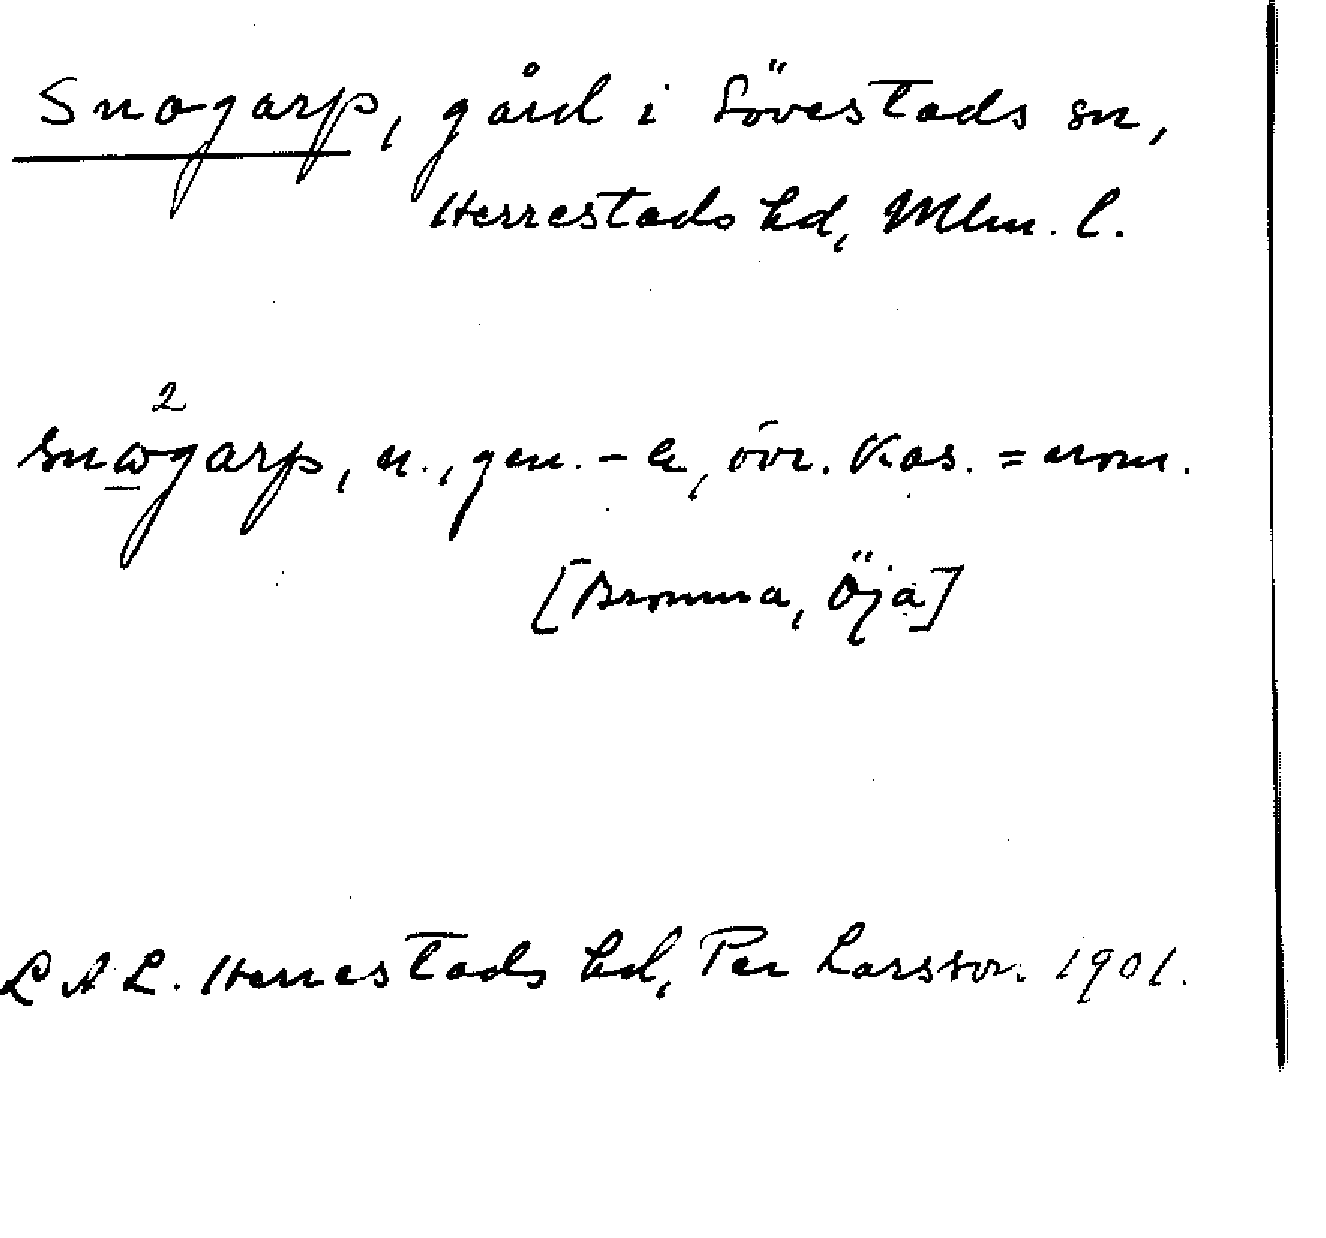 Snogarp, gård i Sövestads sn,
Herrestads hd, Mlm. l.
2
snωgarp, n., gen. -a, övr. kas. = nom.
[Bromma, Öja]
L A L. Herrestads hd, Per Larsson 1901.